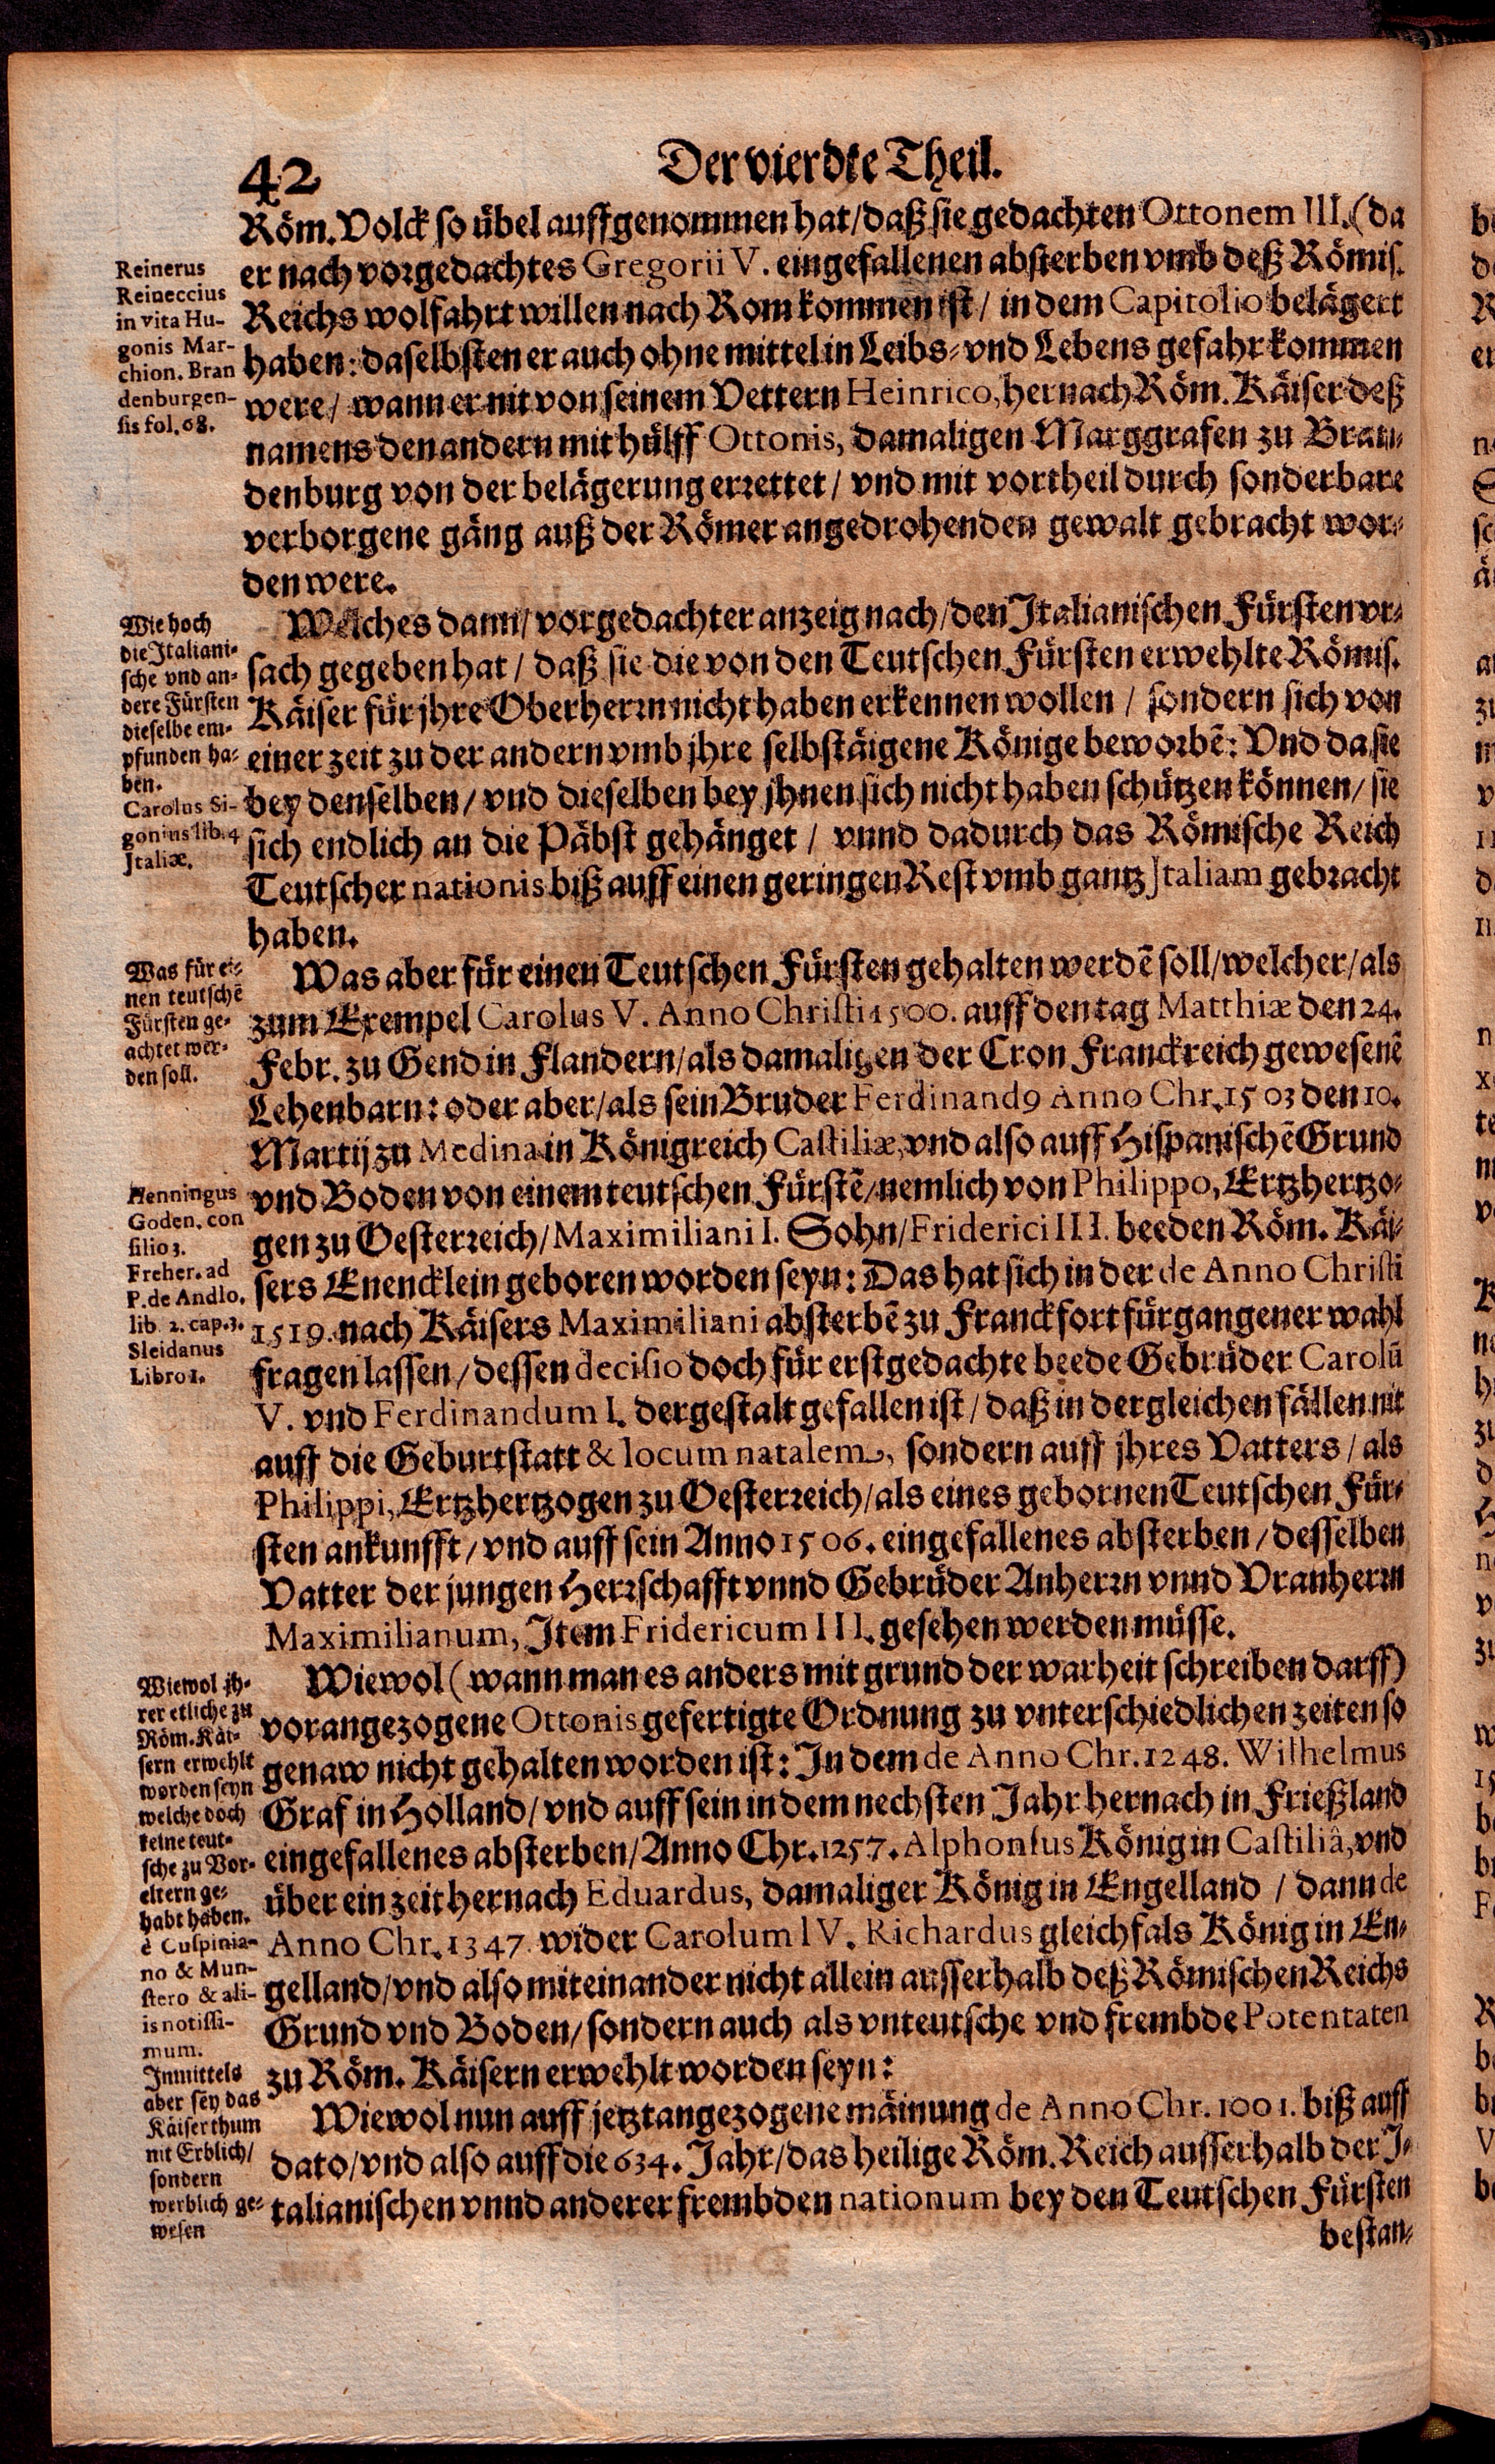 42
Der vierdte Theil.
Röm. Volck so übel auffgenommen hat/daß sie gedachten Ottonem III. (da
er nach vorgedachtes Gregorii V. eingefallenen absterben vmb deß Römis.
Reichs wolfahrt willen nach Rom kommen ist / in dem Capitolio belägert
haben: daselbsten er auch ohne mittel in Leibs- vnd Lebens gefahr kommen
were/ wann er nit von seinem Vettern Heinrico, hernach Röm. Käiser deß
namens den andern mit hülff Ottonis, damaligen Marggrafen zu Bran-
denburg von der belägerung errettet / vnd mit vortheil durch sonderbare
verborgene gäng auß der Römer angedrohenden gewalt gebracht wor-
den were.
Reinerus
Reineccius
in vita Hu-
gonis Mar-
chion. Bran
denburgen-
sis fol. 68.
Welches dann/ vorgedachter anzeig nach/den Italianischen Fürsten vr-
sach gegeben hat / daß sie die von den Teutschen Fürsten erwehlte Römis.
Käiser für jhre Oberherrn nicht haben erkennen wollen / sondern sich von
einer zeit zu der andern vmb jhre selbstäigene Könige beworbẽ: Vnd da sie
bey denselben/ vnd dieselben bey jhnen sich nicht haben schützen können/ sie
sich endlich an die Päbst gehänget / vnnd dadurch das Römische Reich
Teutscher nationis biß auff einen geringen Rest vmb gantz Italiam gebracht
haben.
Wie hoch
die Italiani-
sche vnd an-
dere Fürsten
dieselbe em-
pfunden ha-
ben.
Carolus Si-
gonius lib. 4
Italiæ.
Was aber für einen Teutschen Fürsten gehalten werdẽ soll/welcher/als
zum Exempel Carolus V. Anno Christi 1500. auff den tag Matthiæ den 24.
Febr. zu Gend in Flandern/als damaligen der Cron Franckreich gewesenẽ
Lehenbarn: oder aber/als sein Bruder Ferdinand9 Anno Chr. 1503 den 10.
Martij zu Medina in Königreich Castiliæ, vnd also auff Hispanischẽ Grund
vnd Boden von einem teutschen Fürstẽ/nemlich von Philippo, Ertzhertzo-
gen zu Oesterreich/Maximiliani I. Sohn/Friderici III. beeden Röm. Käi-
sers Enencklein geboren worden seyn: Das hat sich in der de Anno Christi
1519. nach Käisers Maximiliani absterbẽ zu Franckfort fürgangener wahl
fragen lassen/dessen decisio doch für erstgedachte beede Gebrüder Carolũ
V. vnd Ferdinandum I. dergestalt gefallen ist/daß in dergleichen fällen nit
auff die Geburtstatt & locum natalem, sondern auff jhres Vatters / als
Philippi, Ertzhertzogen zu Oesterreich/als eines gebornen Teutschen Für-
sten ankunfft/vnd auff sein Anno 1506. eingefallenes absterben/desselben
Vatter der jungen Herrschafft vnnd Gebrüder Anherrn vnnd Vranherrn
Maximilianum, Item Fridericum III. gesehen werden müsse.
Was für ei-
nen teutschẽ
Fürsten ge-
achtet wer-
den soll.
Henningus
Goden. con
silio 3.
Freher. ad
P. de Andlo.
lib. 2. cap. 3.
Sleidanus
Libro 1.
Wiewol (wann man es anders mit grund der warheit schreiben darff)
vorangezogene Ottonis gefertigte Ordnung zu vnterschiedlichen zeiten so
genaw nicht gehalten worden ist: In dem de Anno Chr. 1248. Wilhelmus
Graf in Holland/vnd auff sein in dem nechsten Jahr hernach in Frießland
eingefallenes absterben/Anno Chr. 1257. Alphonsus König in Castiliâ, vnd
über ein zeit hernach Eduardus, damaliger König in Engelland / dann de
Anno Chr. 1347. wider Carolum IV. Richardus gleichfals König in En-
gelland/vnd also miteinander nicht allein ausserhalb deß Römischen Reichs
Grund vnd Boden/sondern auch als vnteutsche vnd frembde Potentaten
zu Röm. Käisern erwehlt worden seyn:
Wiewol jh-
rer etliche zu
Röm. Käi-
sern erwehlt
worden seyn
welche doch
keine teut-
sche zu Vor-
eltern ge-
habt haben.
è Cuspinia-
no & Mun-
stero & ali-
is notissi-
mum.
Wiewol nun auff jetztangezogene mäinung de Anno Chr. 1001. biß auff
dato/vnd also auff die 634. Jahr/das heilige Röm. Reich ausserhalb der I-
talianischen vnnd anderer frembden nationum bey den Teutschen Fürsten
Inmittels
aber sey das
Käiserthum
nit Erblich/
sondern
werblich ge-
wesen
bestan-